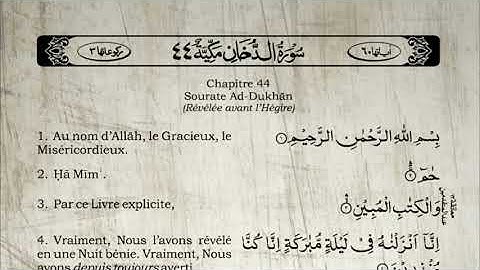 ركوعاتها ٣ سُورَةُ الدُّخَانِ مَكِّيَّةٌ ٤٤ اٰياتها ٦٠
Chapitre 44
Sourate Ad-Dukhān
(Révélée avant l'Hégire)
1. Au nom d'Allāh, le Gracieux, le
Miséricordieux.
بِسْمِ اللّٰهِ الرَّحْمٰنِ الرَّحِيْمِ ۝١
2. Ḥā Mīm.
حٰمٓ ۝٢
3. Par ce Livre explicite,
وَالْكِتٰبِ الْمُبِيْنِ ۝٣
4. Vraiment, Nous l'avons révélé
en une Nuit bénie. Vraiment, Nous
avons depuis toujours averti
اِنَّاۤ اَنْزَلْنٰهُ فِيْ لَيْلَةٍ مُّبٰرَكَةٍ اِنَّا كُنَّا
مُنْذِرِيْنَ